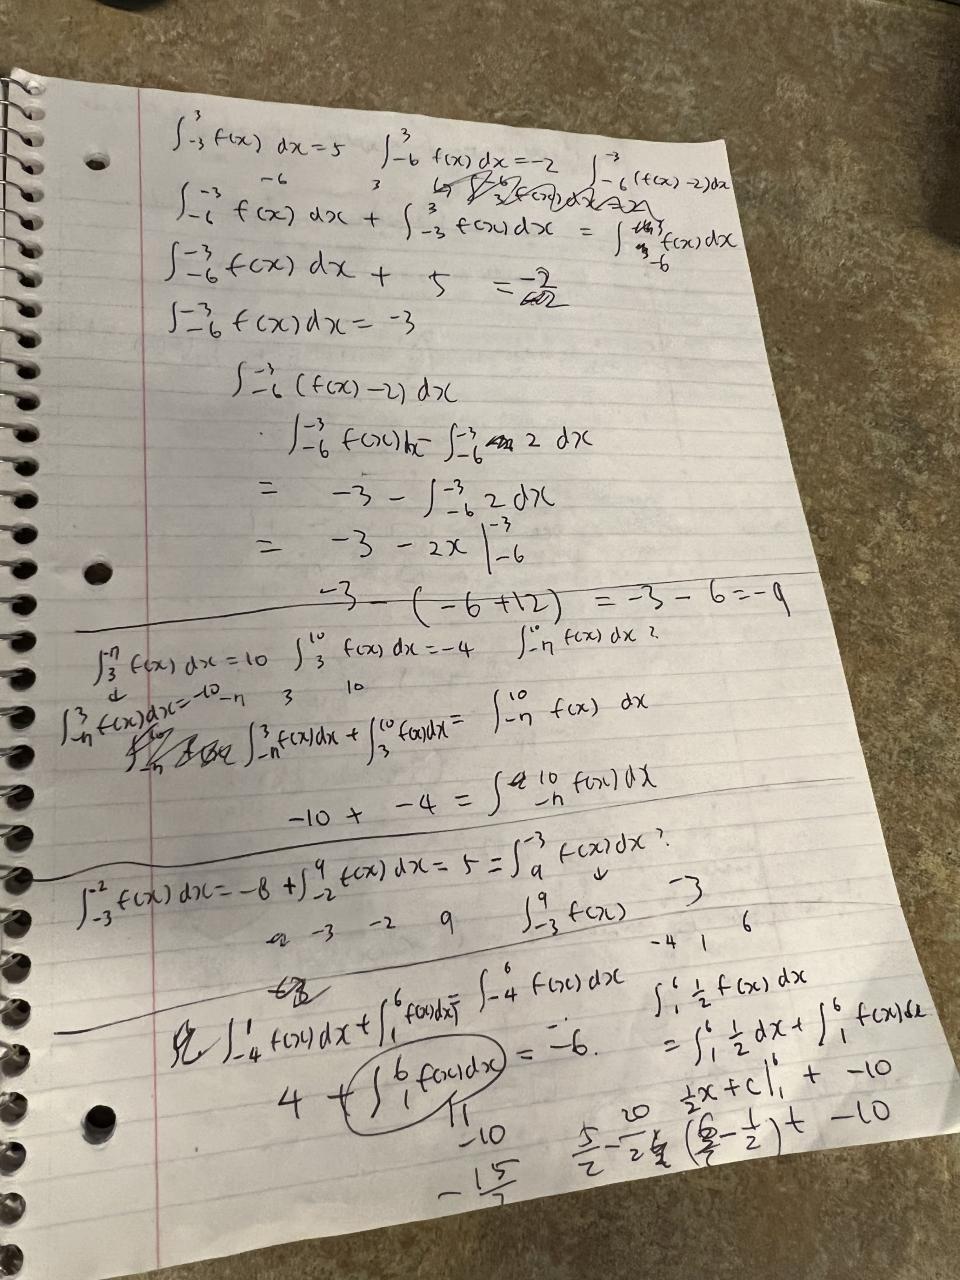 ∫_{-3}^{3} f(x) dx = 5   ∫_{-6}^{3} f(x) dx = -2   ∫_{-6}^{-3} (f(x) -2) dx
-6   3
∫_{-6}^{-3} f(x) dx + ∫_{-3}^{3} f(x) dx = ∫_{-6}^{3} f(x) dx
∫_{-6}^{-3} f(x) dx + 5 = -2
∫_{-6}^{-3} f(x) dx = -3
∫_{-6}^{-3} (f(x) -2) dx
∫_{-6}^{-3} f(x) dx - ∫_{-6}^{-3} 2 dx
= -3 - ∫_{-6}^{-3} 2 dx
= -3 - 2x |_{-6}^{-3}
-3 - (-6 +12) = -3 - 6 = -9
∫_{3}^{-7} f(x) dx = 10   ∫_{3}^{10} f(x) dx = -4   ∫_{-7}^{10} f(x) dx ?
↓
∫_{-7}^{3} f(x) dx = -10   -7   3   10
∫_{-7}^{3} f(x) dx + ∫_{3}^{10} f(x) dx = ∫_{-7}^{10} f(x) dx
-10 + -4 = ∫_{-7}^{10} f(x) dx
∫_{-3}^{-2} f(x) dx = -8 + ∫_{-2}^{9} f(x) dx = 5 = ∫_{9}^{-3} f(x) dx ?
↓
-3   -2   9   ∫_{-3}^{9} f(x)   -3
-4   1   6
∫_{-4}^{1} f(x) dx + ∫_{1}^{6} f(x) dx = ∫_{-4}^{6} f(x) dx   ∫_{1}^{6} 1/2 f(x) dx
4 + ∫_{1}^{6} f(x) dx = -6.   = ∫_{1}^{6} 1/2 dx + ∫_{1}^{6} f(x) dx
-10   1/2 x + c |_{1}^{6} + -10
5/2 - 20/2   (6/2 - 1/2) + -10
-15/2